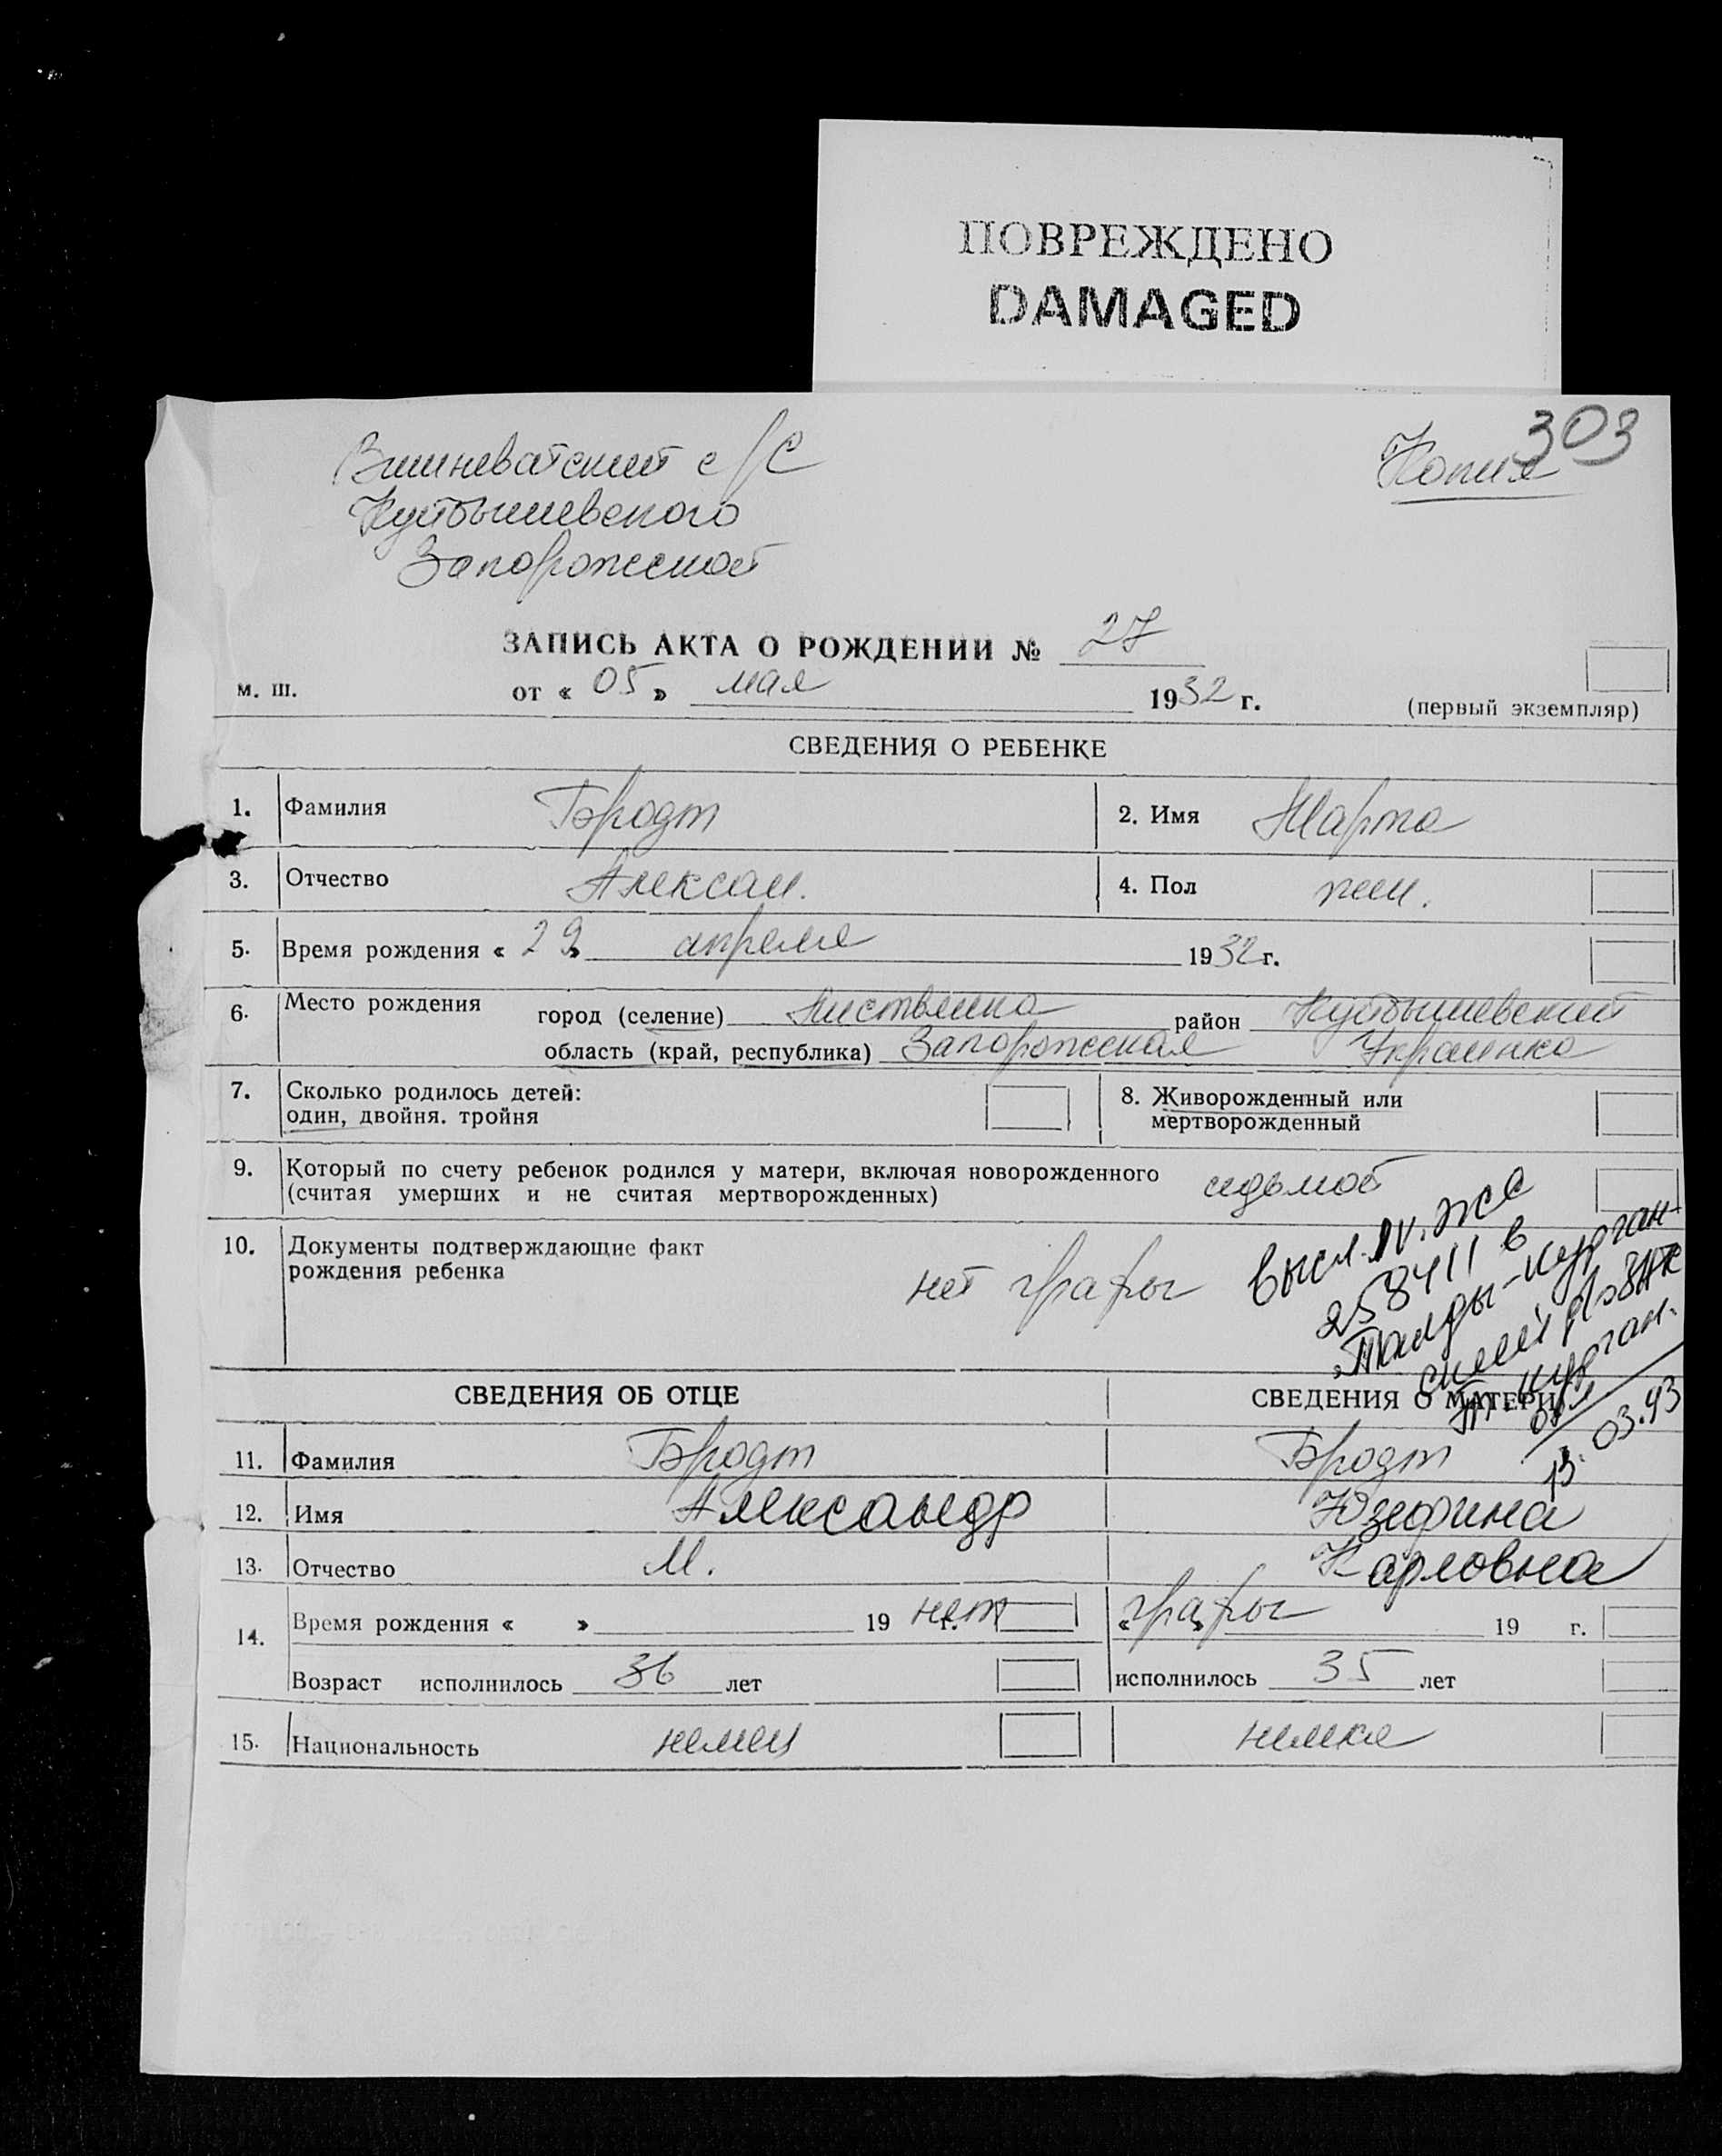 ПОВРЕЖДЕНО
DAMAGED
303
Вишневатский с/с
Копия
Куйбышевского
Запорожской
ЗАПИСЬ АКТА О РОЖДЕНИИ № 27
м. ш. от « 05 » мая 1932 г. (первый экземпляр)
СВЕДЕНИЯ О РЕБЕНКЕ
1. Фамилия Бродт 2. Имя Марта
3. Отчество Алексан. 4. Пол жен.
5. Время рождения « 29 » апреля 1932 г.
6. Место рождения город (селение) Листвянка район Куйбышевский
область (край, республика) Запорожская Украинка
7. Сколько родилось детей: 8. Живорожденный или
один, двойня. тройня мертворожденный
9. Который по счету ребенок родился у матери, включая новорожденного седьмой
(считая умерших и не считая мертворожденных)
10. Документы подтверждающие факт
рождения ребенка нет графы
высл. IV-ЖС
258411 в
Талды-Курган-
ский ЗАГС
Т-Курган.
обл.
13.03.93
СВЕДЕНИЯ ОБ ОТЦЕ СВЕДЕНИЯ О МАТЕРИ
11. Фамилия Бродт Бродт
12. Имя Александр Юзефина
13. Отчество М. Карловна
14. Время рождения « » 19 нет г. « графы » 19 г.
Возраст исполнилось 36 лет исполнилось 35 лет
15. Национальность немец немка